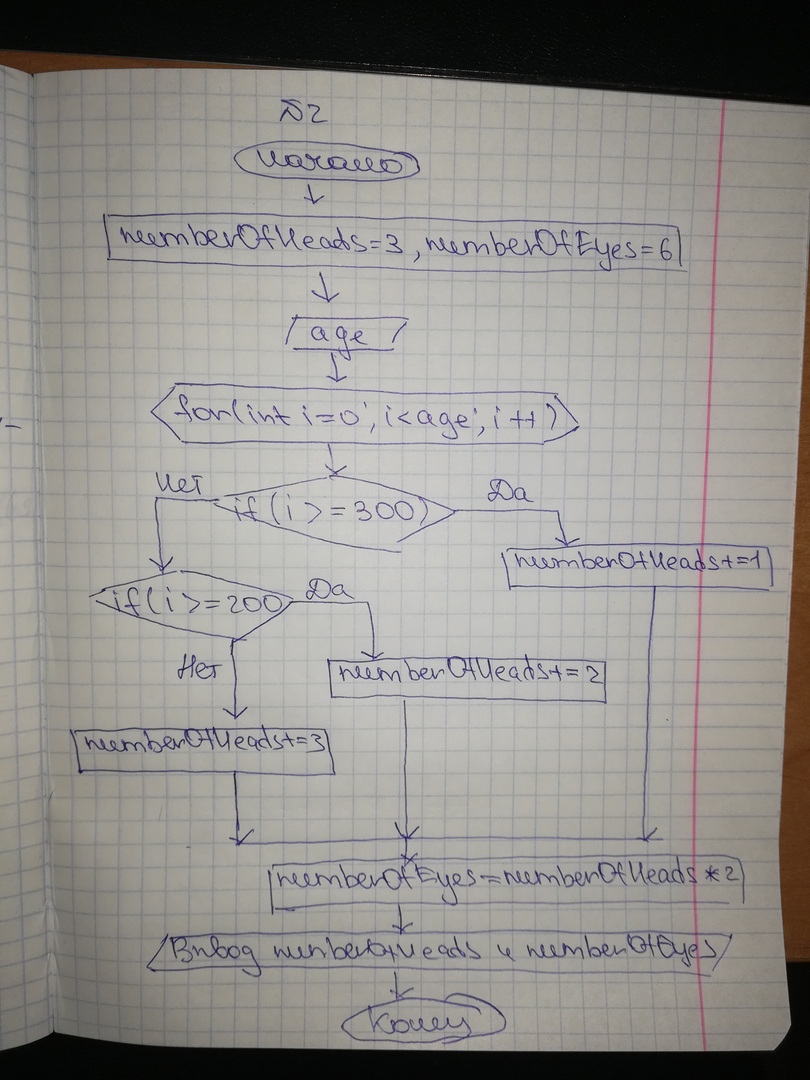 №2
Начало
numberOfHeads=3, numberOfEyes=6
age
for(int i=0; i<age; i++)
Нет
if(i>=300)
Да
numberOfHeads+=1
if(i>=200)
Да
Нет
numberOfHeads+=2
numberOfHeads+=3
numberOfEyes=numberOfHeads*2
Вывод numberOfHeads и numberOfEyes
Конец